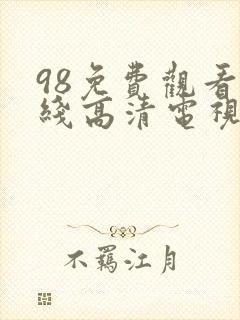 98免費觀看
綫高清電視
不羈江月